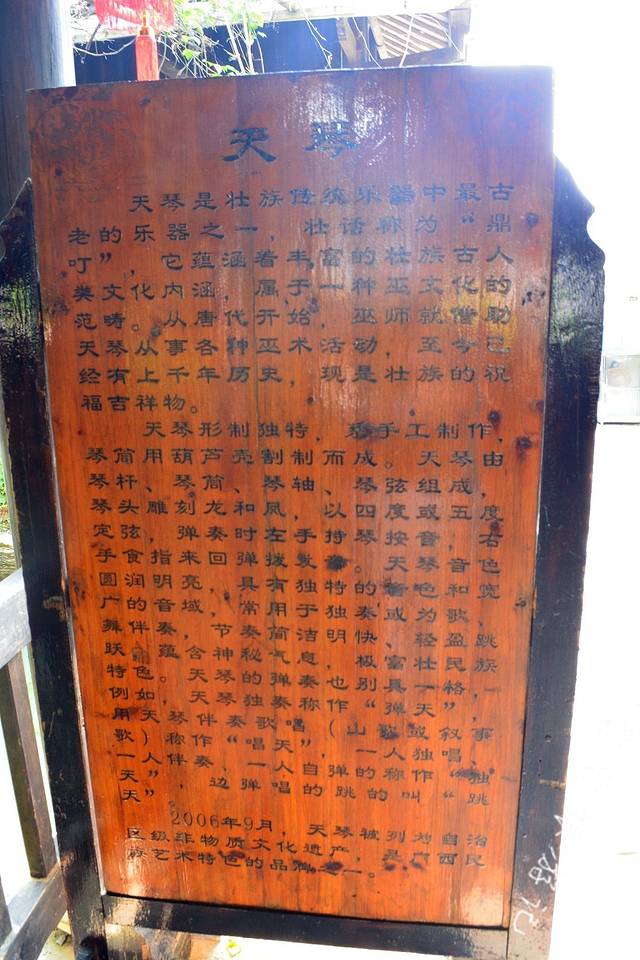 天琴
天琴是壮族传统乐器中最古
老的乐器之一，壮话称为“鼎
叮”，它蕴涵着丰富的壮族古人
类文化内涵，属于一种巫文化的
范畴。从唐代开始，巫师就借助
天琴从事各种巫术活动，至今已
经有上千年历史，现是壮族的祝
福吉祥物。
天琴形制独特，手工制作，
琴筒用葫芦壳割制而成。天琴由
琴杆、琴筒、琴轴、琴弦组成，
琴头雕刻龙和凤，以四度或五度
定弦，弹奏时左手持琴按音，右
手食指来回弹拨发音。天音色
圆润明亮，具有独特的音色和宽
广的音域，常用于独奏或为歌、
舞的伴奏，节奏简洁明快、轻盈跳
跃、蕴含神秘气息，极富壮民族
特色。天琴的弹奏也别具一格，
例如，天琴独奏称作“弹天”，
用天琴伴奏歌唱（山歌或叙事
歌）称作“唱天”，一人独唱、
一人伴奏，一人自弹的称作“独
天”，边弹唱的跳的叫“跳
天”
2006年9月，天琴被列为自治
区级非物质文化遗产，是广西民
族艺术特色的品牌之一。